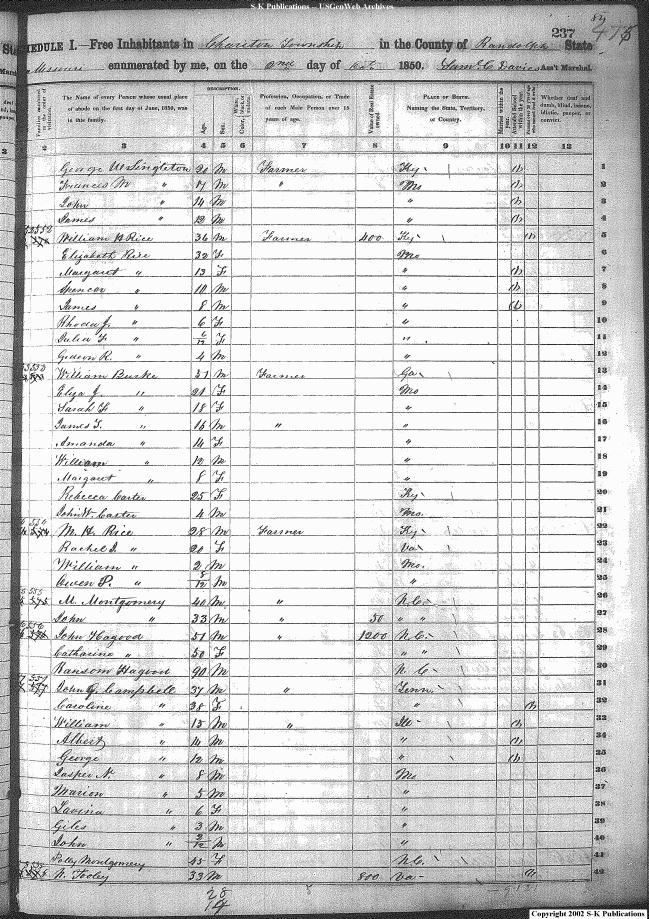 S-K Publications – USGenWeb Archives
237
SCHEDULE I.—Free Inhabitants in Chariton Township in the County of Randolph State
Missouri enumerated by me, on the day of 1850. Saml C Davis Ass't Marshal.
The Name of every Person whose usual place of abode on the first day of June, 1850, was in this family.
DESCRIPTION.
Age.
Sex.
Profession, Occupation, or Trade of each Male Person over 15 years of age.
Value of Real Estate owned.
PLACE OF BIRTH.
Naming the State, Territory, or Country.
Married within the year.
Whether deaf and dumb, blind, insane, idiotic, pauper, or convict.
3 4 5 6 7 8 9 10 11 12 13
George W Singleton 20 M Farmer Ky 1
Frances M " 17 M " Mo 2
John " 14 M " 3
James " 12 M " 4
William B Rice 36 M Farmer 400 Ky 5
Elizabeth Rice 32 F Mo 6
Margaret " 13 F " 7
Spencer " 10 M " 8
James " 8 M " 9
Rhoda J. " 6 F " 10
Julia F " 6/12 F " 11
Gideon R. " 4 M " 12
William Burke 51 M Farmer Ga 13
Eliza J. " 21 F Mo 14
Sarah F " 18 F " 15
James T. " 16 M " " 16
Amanda " 14 F " 17
William " 12 M " 18
Margaret " 8 F " 19
Rebecca Carter 25 F Ky 20
John W. Carter 4 M Mo. 21
M. H. Rice 28 M Farmer Ky 22
Rachel I. " 20 F Va 23
William " 2 M Mo. 24
Owen P. " 8/12 M " 25
M. Montgomery 40 M " N.C. 26
John " 33 M " 50 " " 27
John Hagood 51 M " 1200 N.C. 28
Catharine " 50 F " " 29
Ransom Hagood 90 M N C 30
John Q. Campbell 37 M " Tenn. 31
Caroline " 38 F " 32
William " 15 M " Ill 33
Albert " 14 M " 34
George " 12 M " 35
Jasper N. " 8 M Mo 36
Marion " 5 M " 37
Lavina " 6 F " 38
Giles " 3 M " 39
John " 2/12 M " 40
Polly Montgomery 45 F N.C. 41
N. Tooley 33 M 800 Va 42
28
14
Copyright 2002 S-K Publications